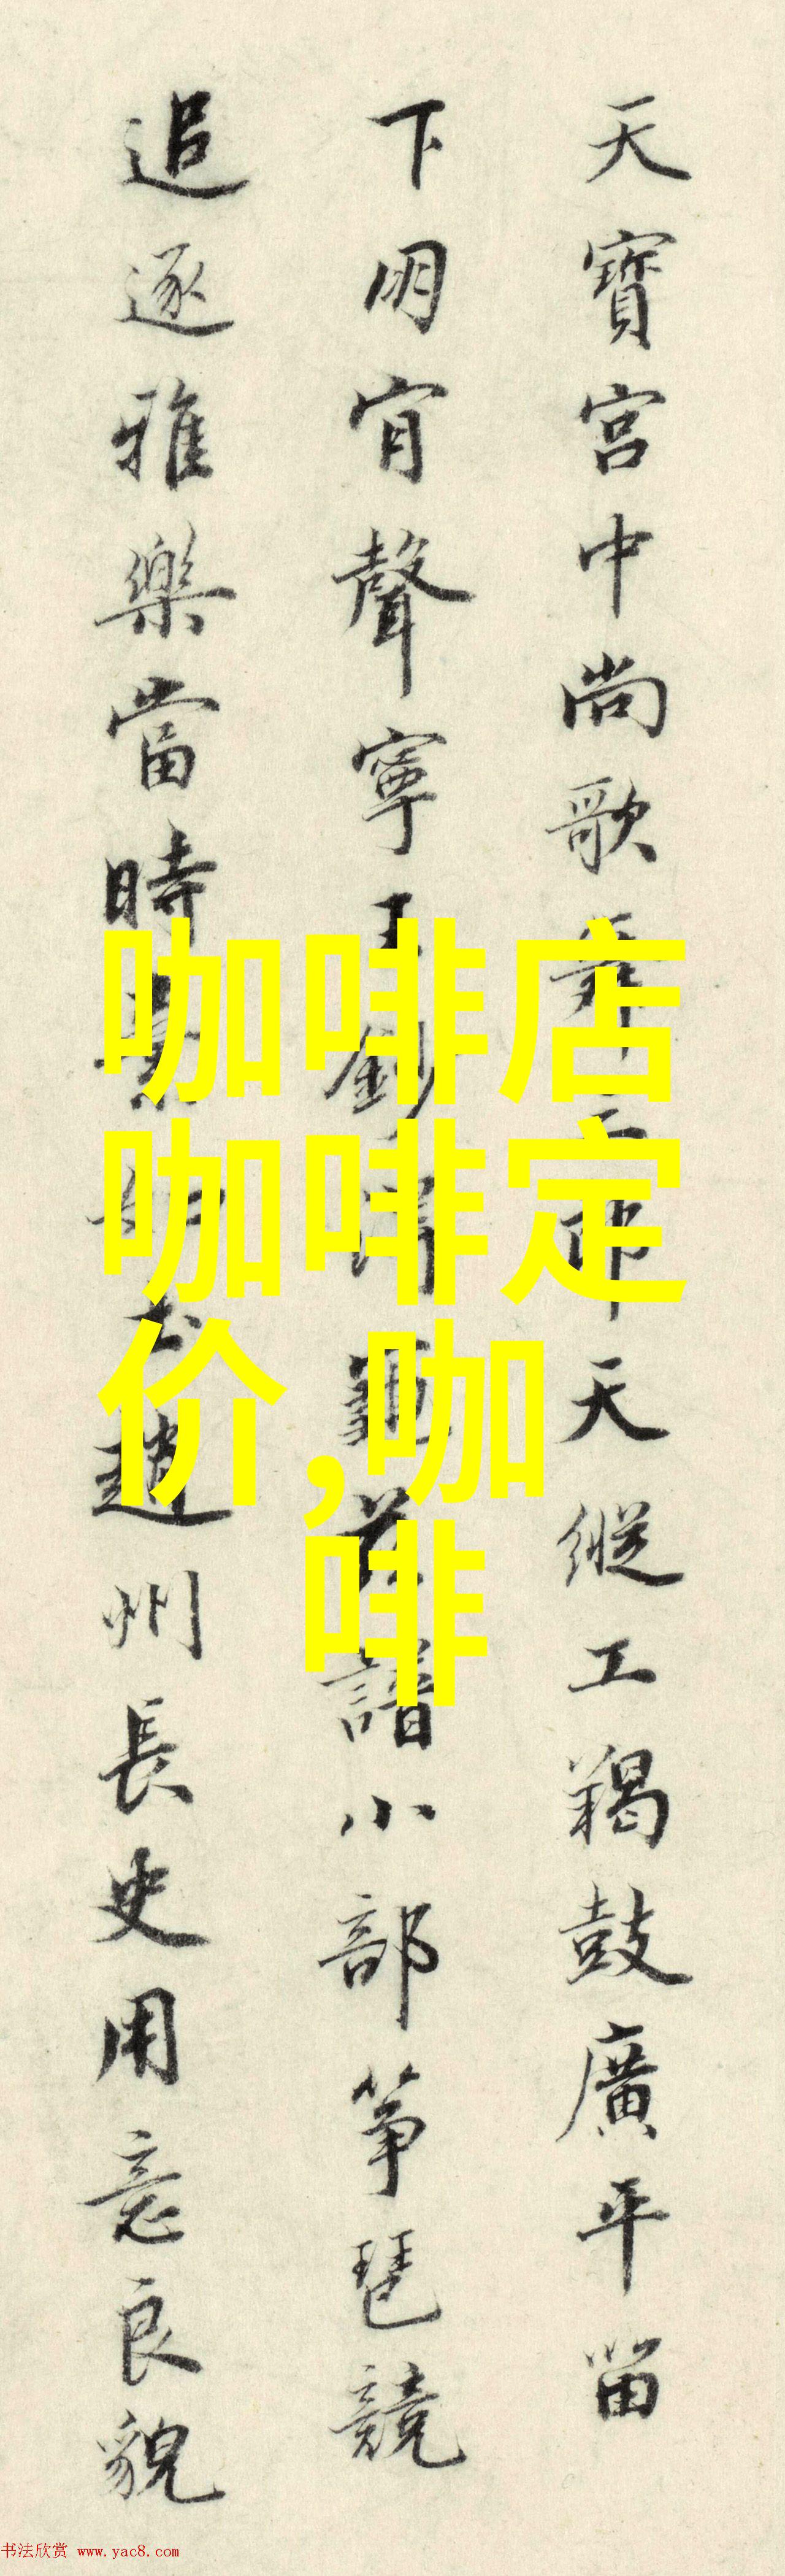 天寶宮中尚歌舞 天縱工羯鼓廣平留
下明宵聲寧王 龜茲譜小部箏琶競
追逐雅樂當時 趙州長史用意良貌
咖啡店
咖啡定
价,咖
啡
书法欣赏 www.yac8.com